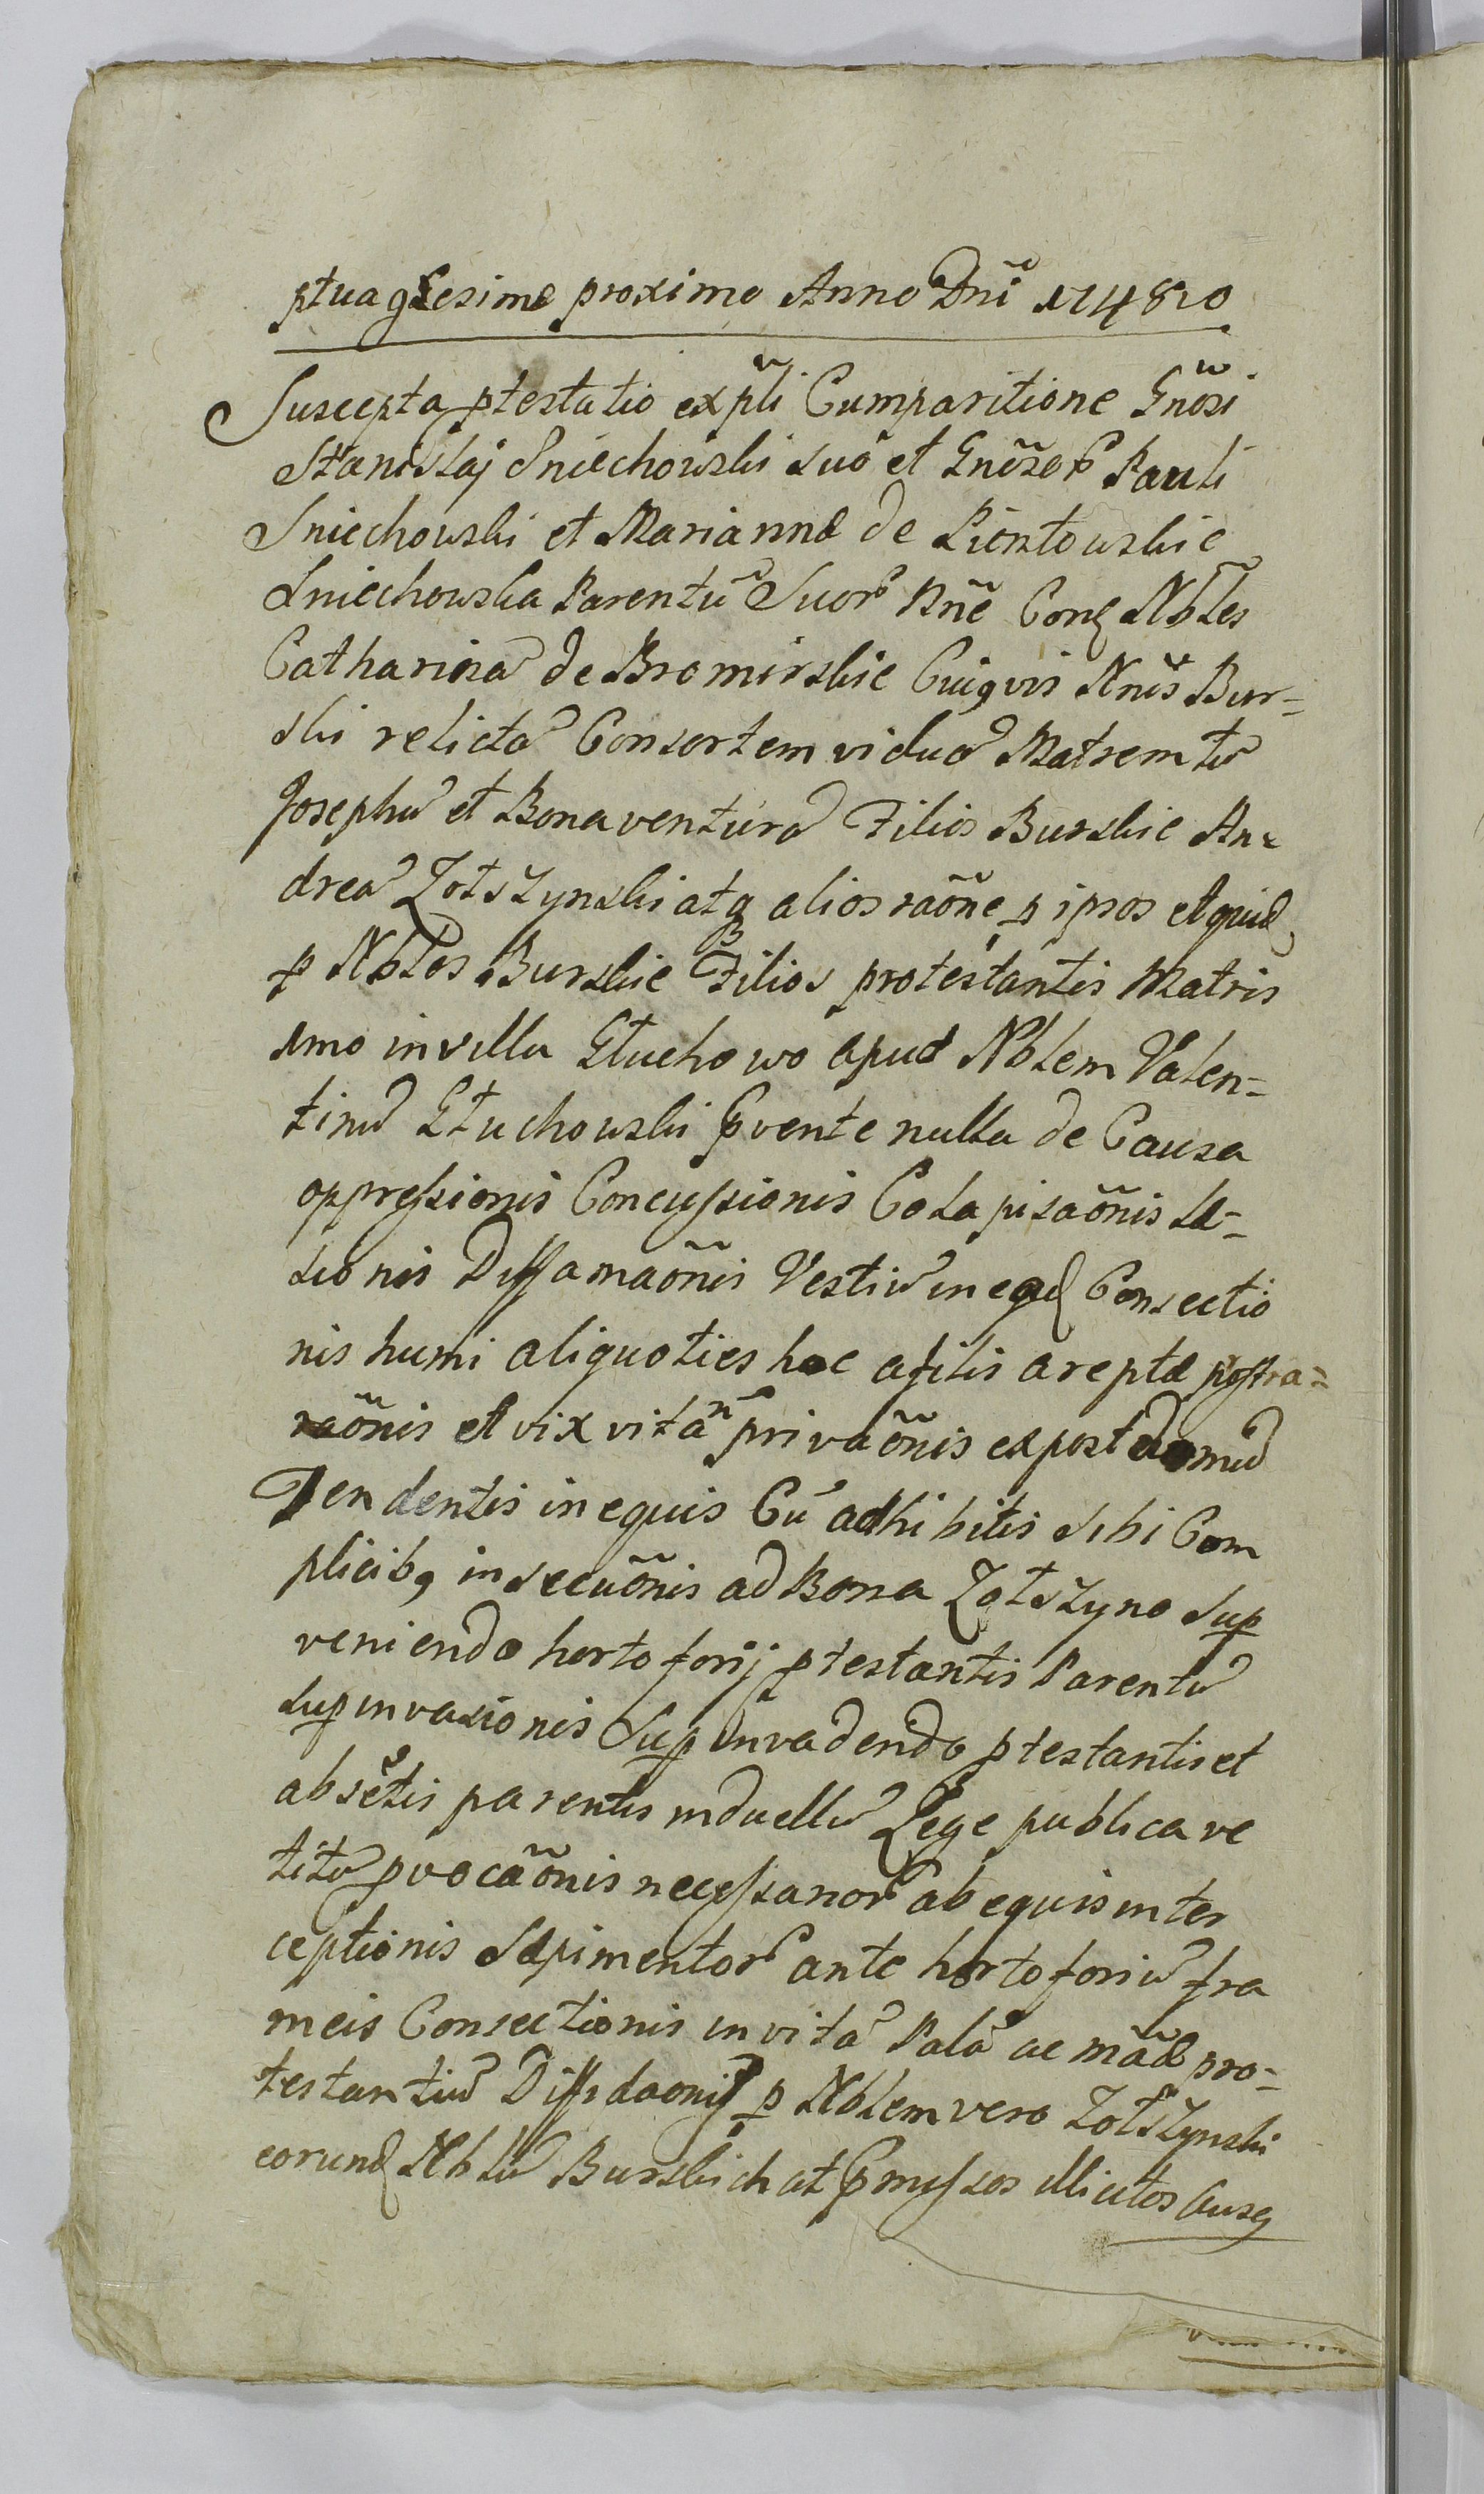 ptuagesimæ proximo Anno Dnĩ 17480
Suscepta ptestatio expłi Cumparitione Gnõsi
Stanislaj Sniechowski suo et Gnõsor Pauli
Sniechowski et Mariannæ de Pientowskie
Sniechowska Parentũ Suor Nñe Con Nbles
Catharinã de Bromirskie Cuiqvis Nñis Bur-
ski relictã Consortem viduã Matrem tũ
Josephũ et Bonaventurã Filios Burskie An-
dreã Zołszynski atq alios raõne p ipsos et quid
p Nbles Burskie Filios protestantis Matris
imo in villa Głuchowo apud Nblem Valen-
tinũ Głuchowski pvente nulla de Causa
oppressionis Concussionis Colapisaõnis læ-
sionis Diffamaõnis Vestiũ in eod Consectio
nis humi aliquoties hac afitis areptæ prostra-
raõnis et vix vitã privaõnis expost domũ
Tendentis in equis Cũ adhibitis sibi Com
plicib9 insecuõnis ad Bona Zołszyno Sup
veniendo hortoforij ptestantis Parentũ
supinvasionis Supinvadendo ptestantis et
absẽtis parentis in duellũ Lege publica ve
titũ pvocaõnis necessarior ab equis inter
ceptionis Sæpimentor ante hortoforiũ fra
meis Consectionis in vitã Palã ac mãæ pro-
testantiũ Diffidaonis p Nblem vero Zołszynski
eorund Nbliũ Burskich at pmissos illicitos Ausq